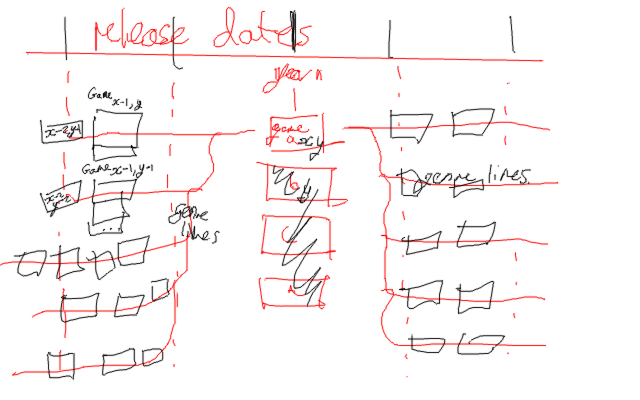 release dates
year n
Game x-1,y
x-2,y-1
game
x,y
Game x-1,y-1
genre lines
genre
lines